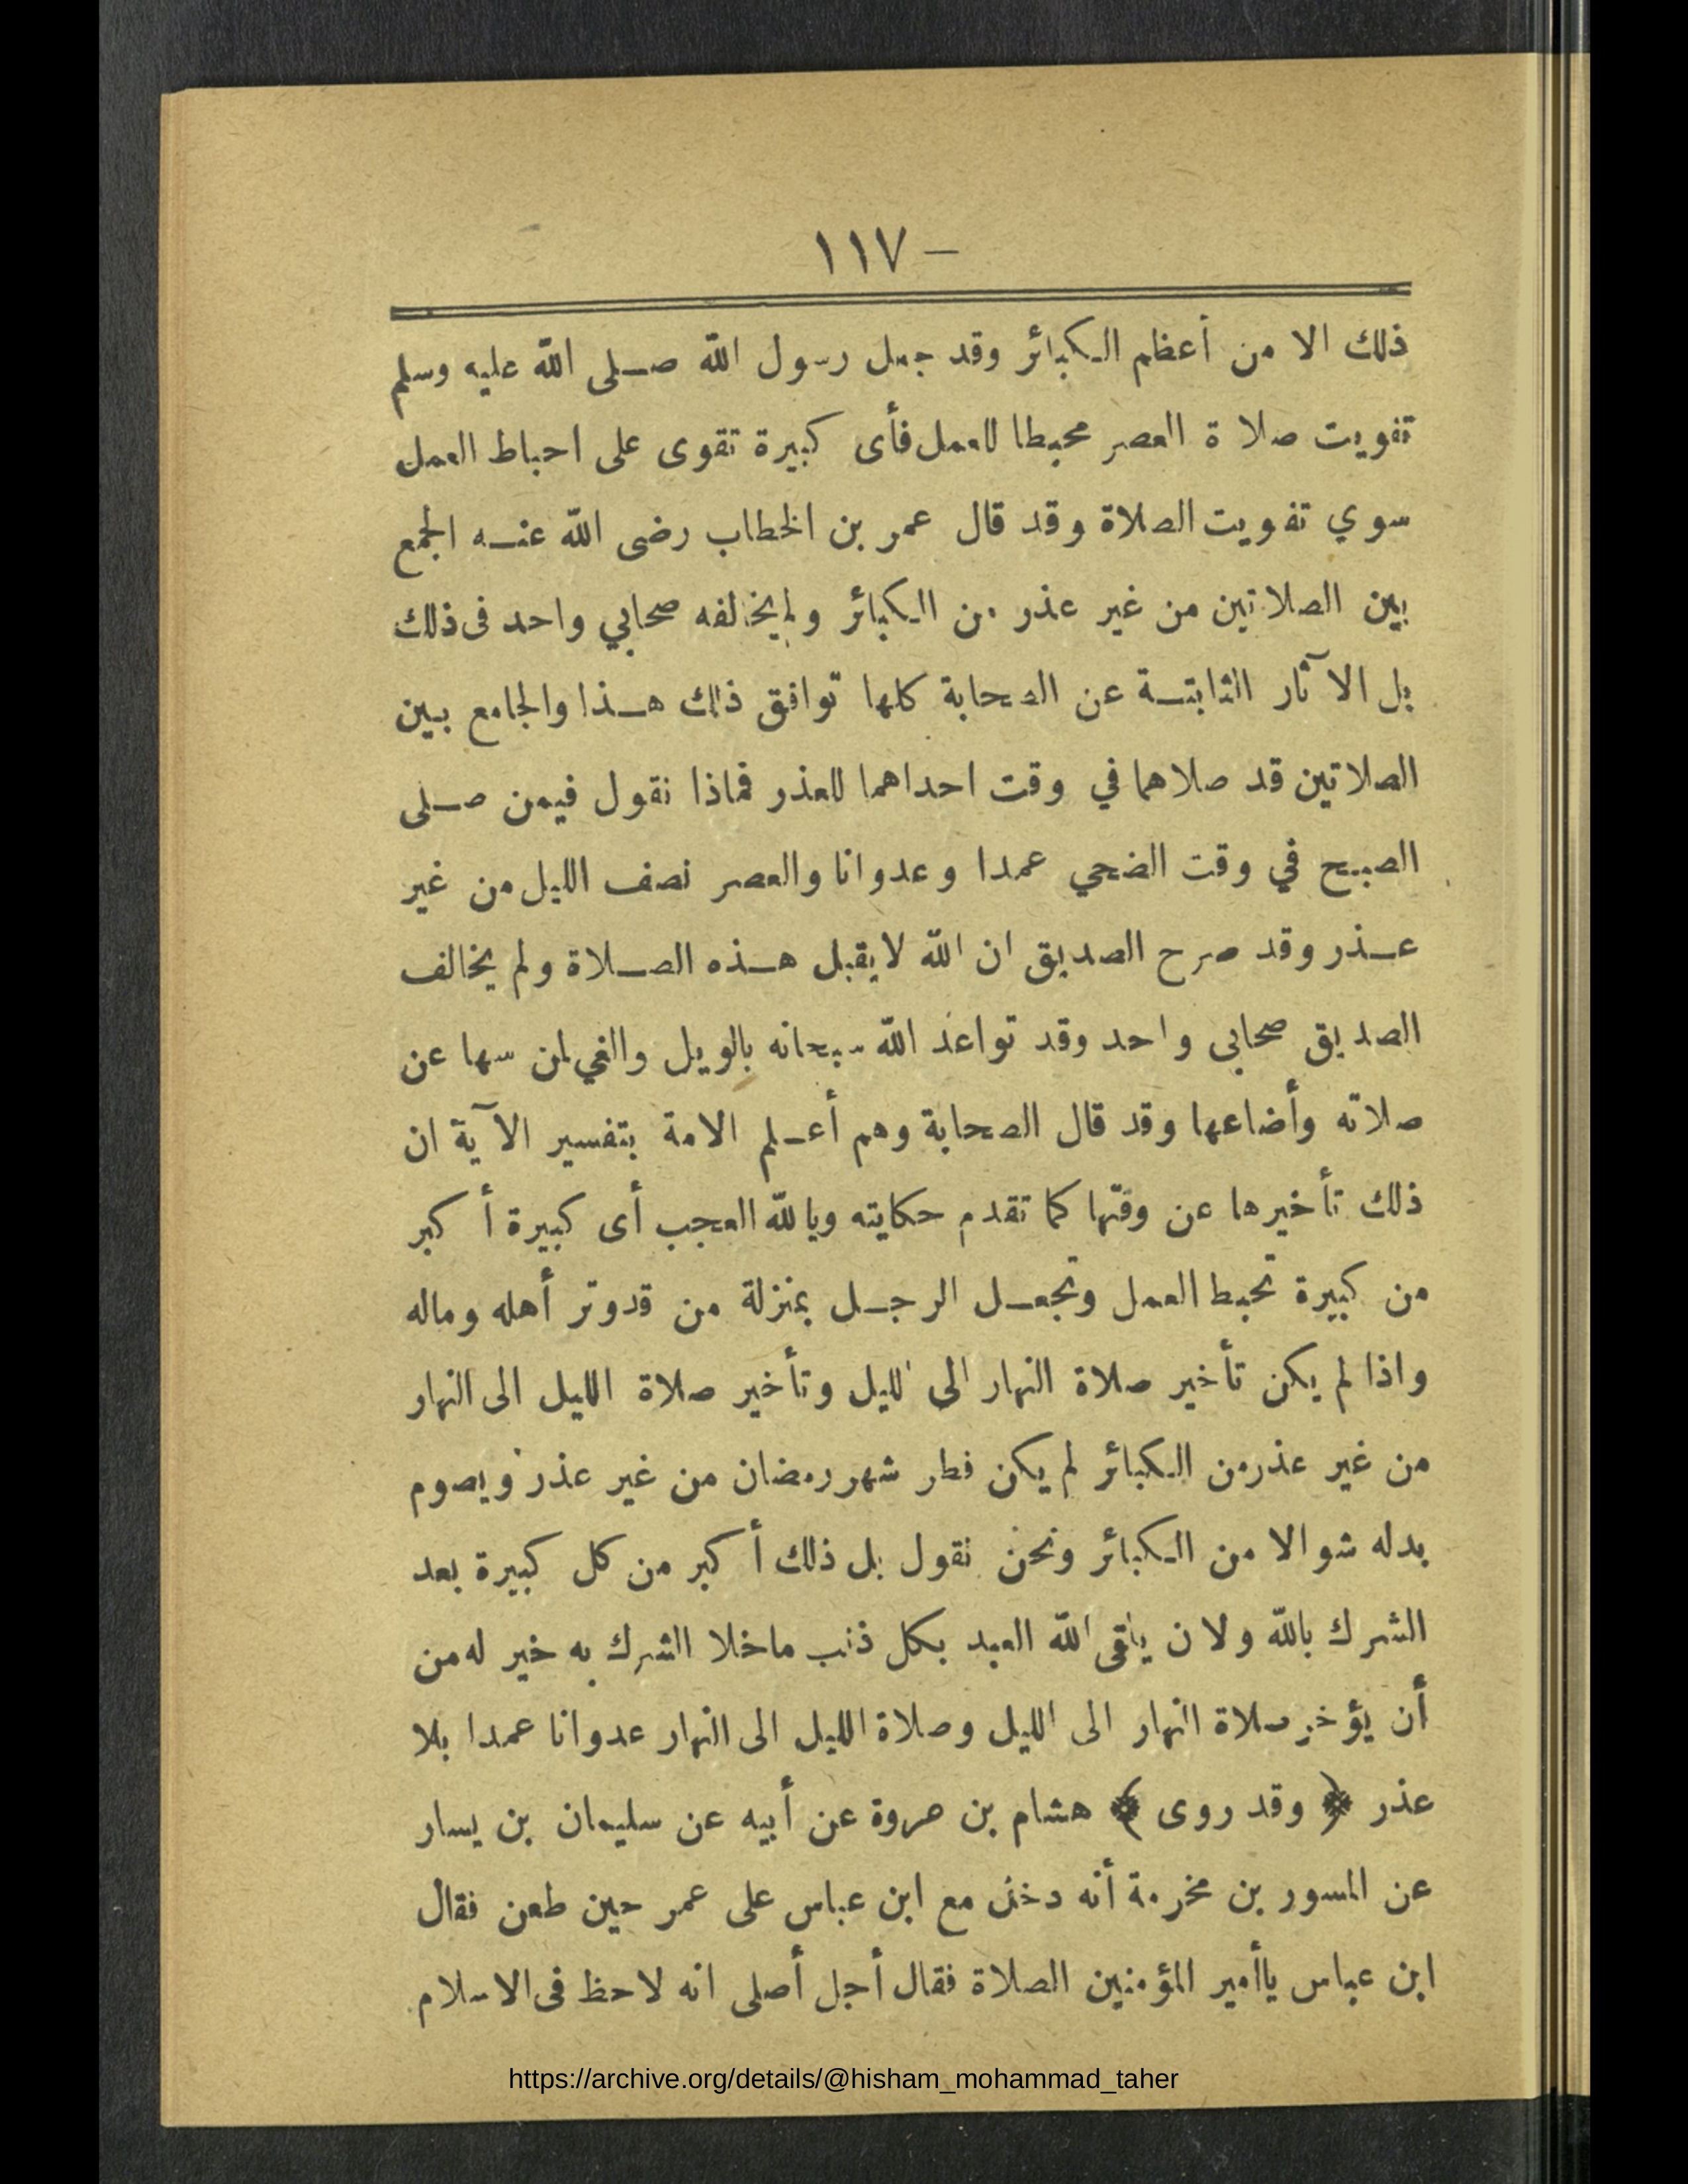 — ١١٧
ذلك الا من أعظم الكبائر وقد جعل رسول الله صلى الله عليه وسلم
تفويت صلاة العصر محبطا للعمل فأى كبيرة تقوى على احباط العمل
سوي تفويت الصلاة وقد قال عمر بن الخطاب رضى الله عنه الجمع
بين الصلاتين من غير عذر من الكبائر ولم يخالفه صحابي واحد فى ذلك
بل الآثار الثابتة عن الصحابة كلها توافق ذلك هذا والجامع بين
الصلاتين قد صلاهما في وقت احداهما للعذر فماذا نقول فيمن صلى
الصبح في وقت الضحي عمدا وعدوانا والعصر نصف الليل من غير
عذر وقد صرح الصديق ان الله لا يقبل هذه الصلاة ولم يخالف
الصديق صحابى واحد وقد تواعد الله سبحانه بالويل والغي لمن سها عن
صلاته وأضاعها وقد قال الصحابة وهم أعلم الامة بتفسير الآية ان
ذلك تأخيرها عن وقتها كما تقدم حكايته ويالله العجب أى كبيرة أكبر
من كبيرة تحبط العمل وتجعل الرجل بمنزلة من قد وتر أهله وماله
واذا لم يكن تأخير صلاة النهار الى الليل وتأخير صلاة الليل الى النهار
من غير عذر من الكبائر لم يكن فطر شهر رمضان من غير عذر ويصوم
بدله شوالا من الكبائر ونحن نقول بل ذلك أكبر من كل كبيرة بعد
الشرك بالله ولان يلقى الله العبد بكل ذنب ماخلا الشرك به خير له من
أن يؤخر صلاة النهار الى الليل وصلاة الليل الى النهار عدوانا عمدا بلا
عذر ﴿ وقد روى ﴾ هشام بن عروة عن أبيه عن سليمان بن يسار
عن المسور بن مخرمة أنه دخل مع ابن عباس على عمر حين طعن فقال
ابن عباس ياأمير المؤمنين الصلاة فقال أجل أصلى انه لاحظ فى الاسلام
https://archive.org/details/@hisham_mohammad_taher